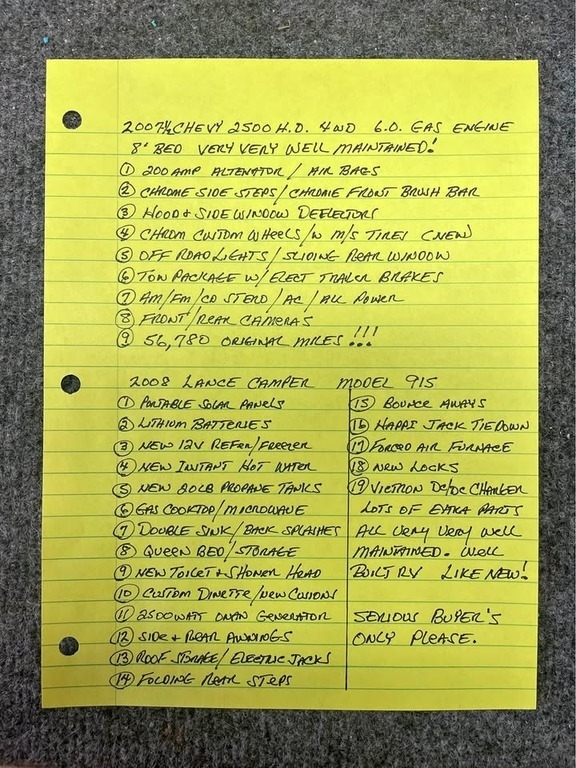 2007½ CHEVY 2500 H.D. 4WD 6.0. GAS ENGINE
8' BED VERY VERY WELL MAINTAINED!
① 200 AMP ALTENATOR / AIR BAGS
② CHROME SIDE STEPS / CHROME FRONT BRUSH BAR
③ HOOD & SIDE WINDOW DEFLECTORS
④ CHROM CUSTOM WHEELS /W M/S TIRES (NEW)
⑤ OFF ROAD LIGHTS / SLIDING REAR WINDOW
⑥ TOW PACKAGE W/ ELECT TRAILER BRAKES
⑦ AM/FM/CD STERO / AC / ALL POWER
⑧ FRONT/REAR CAMERAS
⑨ 56,780 ORIGINAL MILES !!!
2008 LANCE CAMPER MODEL 915
① PORTABLE SOLAR PANELS
② LITHIUM BATTERIES
③ NEW 12V REFER/FREEZER
④ NEW INSTANT HOT WATER
⑤ NEW 20LB PROPANE TANKS
⑥ GAS COOKTOP/MICROWAVE
⑦ DOUBLE SINK/BACK SPLASHES
⑧ QUEEN BED/STORAGE
⑨ NEW TOILET & SHOWER HEAD
⑩ CUSTOM DINETTE/NEW CUSIONS
⑪ 2500 WATT ONAN GENERATOR
⑫ SIDE & REAR AWNINGS
⑬ ROOF STORAGE/ELECTRIC JACKS
⑭ FOLDING REAR STEPS
⑮ BOUNCE AWAYS
⑯ HAPPI JACK TIEDOWN
⑰ FORCED AIR FURNACE
⑱ NEW LOCKS
⑲ VICTRON DC/DC CHARGER
LOTS OF EXTRA PARTS
ALL VERY VERY WELL
MAINTAINED. WELL
BUILT RV LIKE NEW!
SERIOUS BUYER'S
ONLY PLEASE.